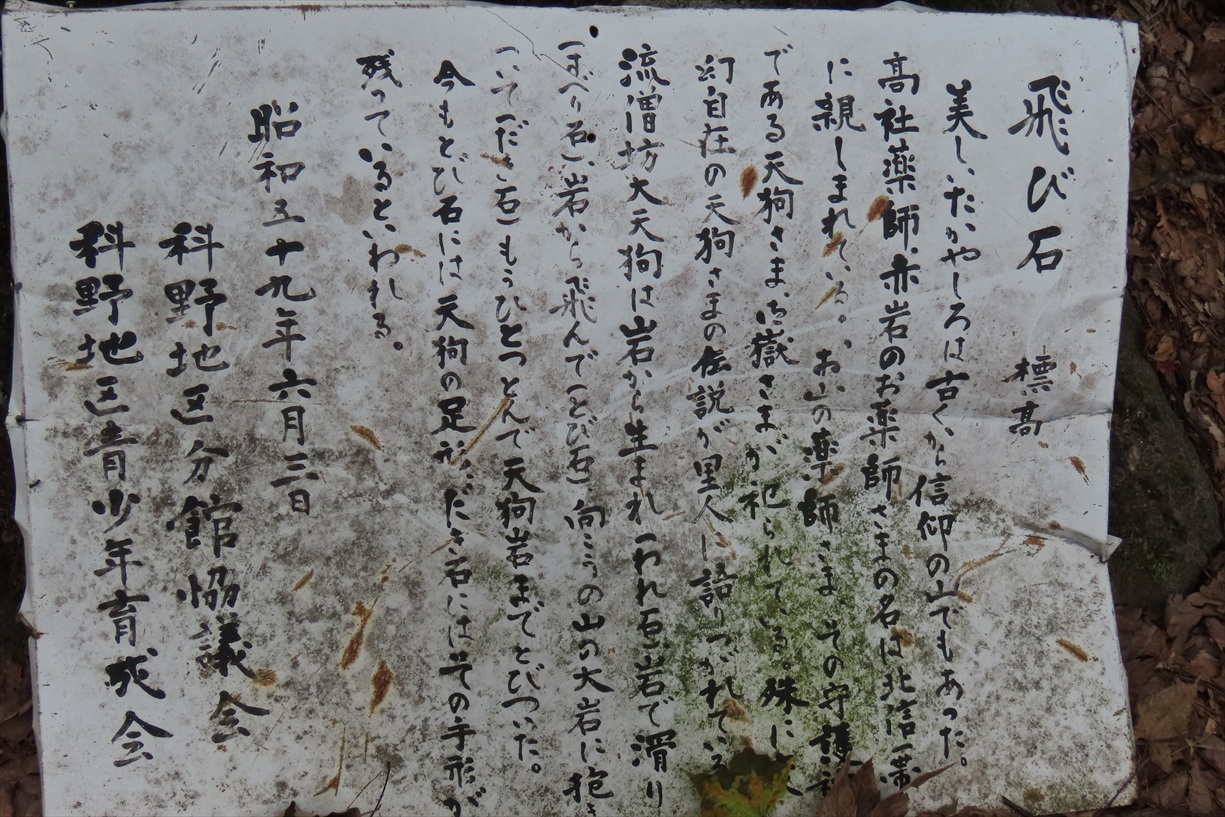 飛び石　標高
美しいたかやしろは古くから信仰の山でもあった。
高社薬師、赤岩のお薬師さまの名は北信一帯
に親しまれている。お山の薬師さま その守護
である天狗さま、御嶽さまが祀られている。殊に
幻自在の天狗さまの伝説が里人に語りつがれている
流僧坊大天狗は岩から生まれ(われ石)、岩で滑り
(すべり石)、岩から飛んで(とび石)向こうの山の大岩に抱き
ついて(だき石)もうひとつとんで天狗岩までとびついた。
今もとび石には天狗の足形、だき石にはその手形が
残っているといわれる。
昭和五十九年六月三日
科野地区分館協議会
科野地区青少年育成会